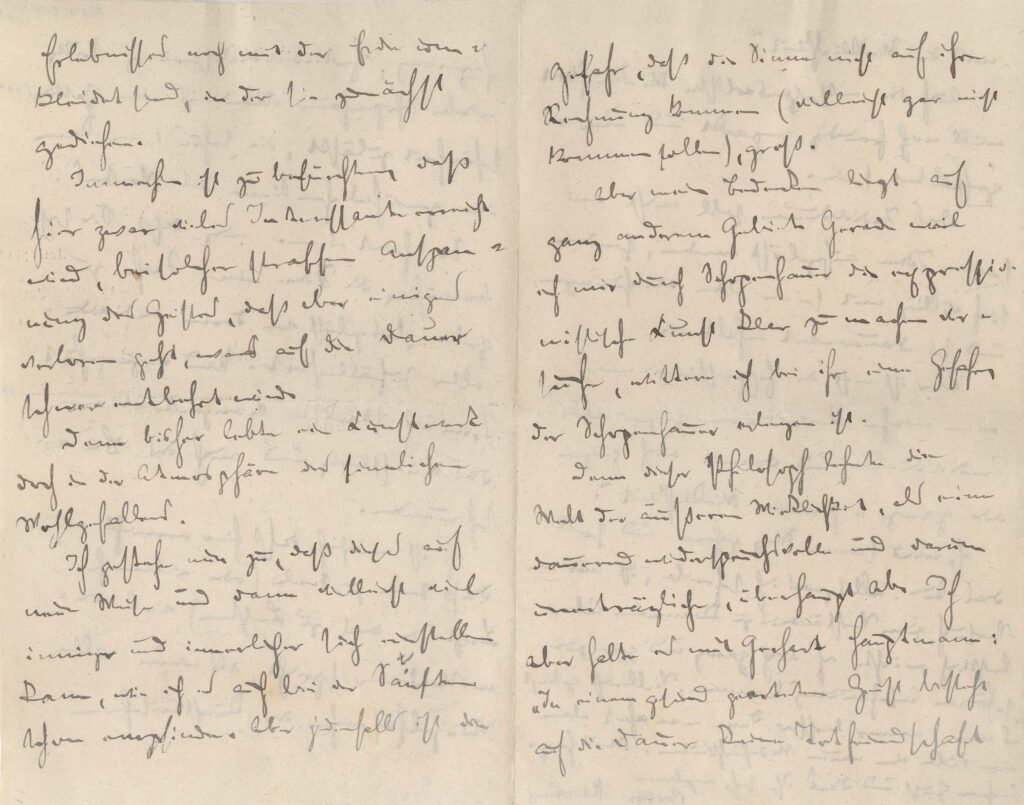 Erlebnisses noch mit der Erde um=
kleidet sind, in der sie zunächst
gediehen.
Immerhin ist zu befürchten, daß
hier zwar vieles Interessante erreicht
wird, bei solcher straffen Anspan=
nung des Geistes, daß aber einiges
verloren geht, was auf die Dauer
schwer entbehrt wird.
Denn bisher lebte ein Kunstwerk
doch in der Atmosphäre des sinnlichen
Wohlgefallens.
Ich gestehe nun zu, daß dieses auf
neue Weise und dann vielleicht viel
inniger und innerlicher sich einstellen
kann, wie ich es auch bei der Sänfte
schon empfinde. Aber jedenfalls ist die
Gefahr, daß die Sinne nicht auf ihre
Rechnung kommen (vielleicht gar nicht
kommen sollen), groß.
Aber mein Bedenken liegt auf
ganz anderem Gebiete Gerade weil
ich mir durch Schopenhauer die expressio-
nistische Kunst klar zu machen ver=
suche, wittere ich bei ihr eine Gefahr,
der Schopenhauer erlegen ist.
Denn dieser Philosoph lehnte die
Welt der äußeren Wirklichkeit, als eine
dauernd widerspruchsvolle und darum
unerträgliche, überhaupt ab. Ich
aber halte es mit Gerhart Hauptmann:
„In einem gesund gearteten Geist besteht
auf die Dauer keine Todfeindschaft